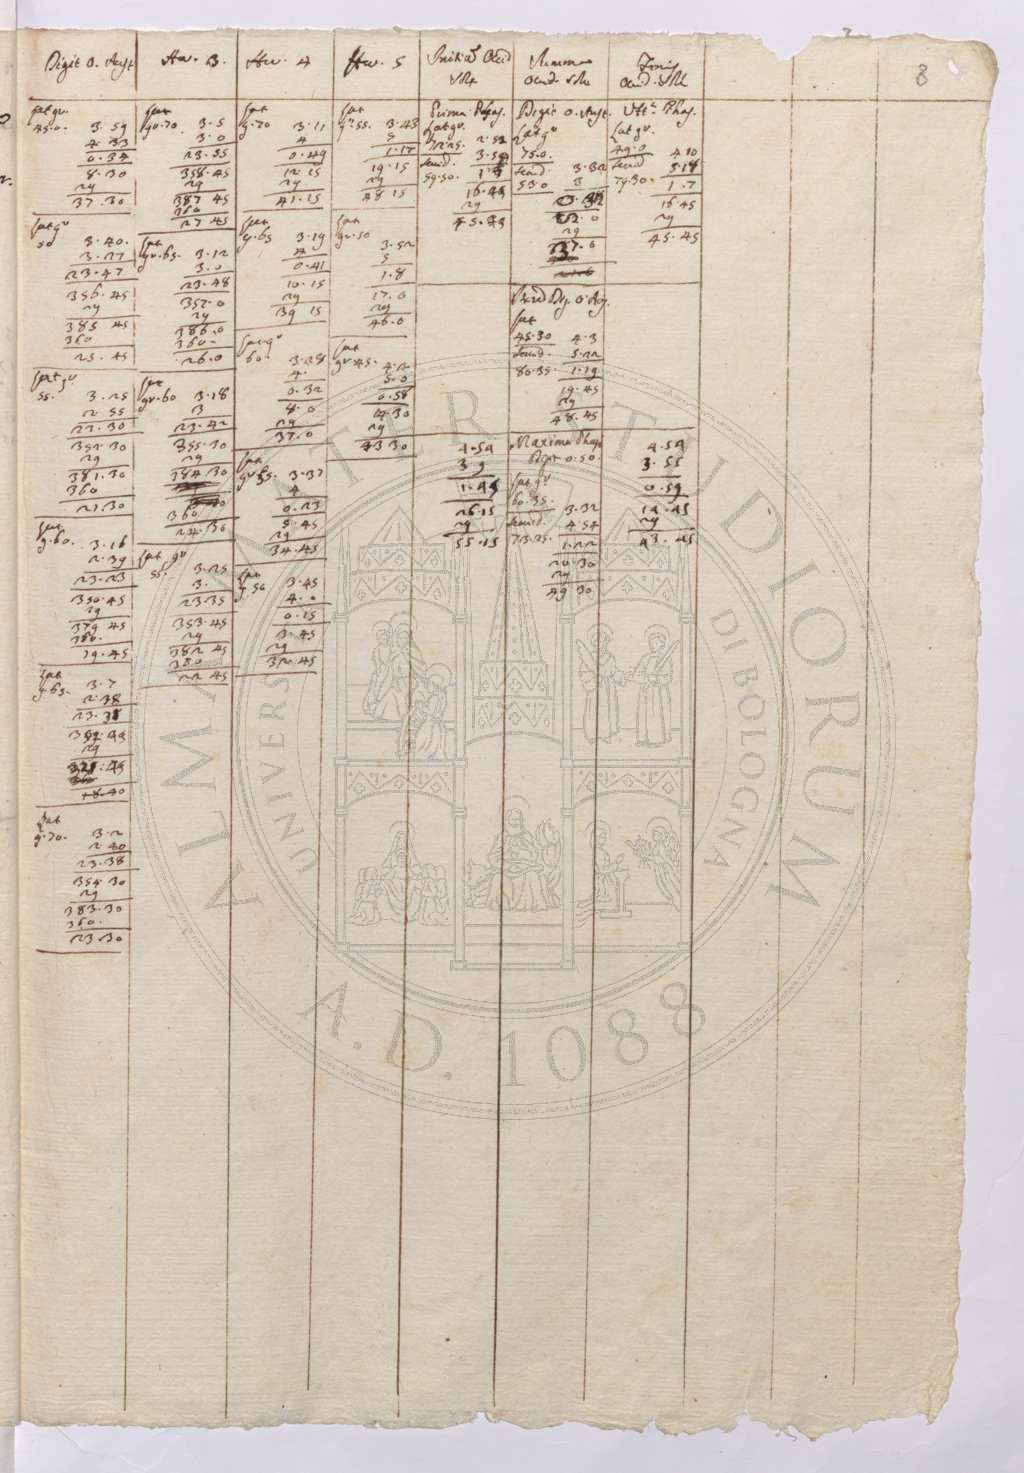 8
Digit 0. Aust.
Hor. 3.
Hor. 4
Hor. 5
Initiu Occid
Solis
Summa
occid. Solis
Finis
Occid. Solis
Lat gr.
45.0. 3.59
4 33
0.34
8.30
29
37.30
Lat gr
50 3.40.
3.27
23.47
356.45
29
385 45
360
25.45
Lat gr
55. 3.25
2 55
23.30
352.30
29
381.30
360
21.30
Lat
g.60. 3.16
2.39
23.23
350.45
29
379 45
360.
19.45
Lat
g.65. 3.7
2.38
23.31
29
18.40
Lat
g.70. 3.2
2 40
23.38
354.30
29
383.30
360.
23.30
Lat
gr.70. 3.5
3.0
23.55
358.45
29
387 45
360
27 45
Lat
gr.65. 3.12
3.0
23.48
357.0
29
386.0
360.
26.0
Lat
gr.60 3.18
3
23.42
355.30
29
384 30
360
24.30
Lat gr
55. 3.25
3.
23.35
353.45
29
382 45
360
22 45
Lat
g.70 3.11
4
0.49
12.15
29
41.15
Lat
g.65 3.19
4
0.41
10.15
29
39 15
Lat gr
60. 3.28
4.
0.32
8.0
29
37.0
Lat
gr.55. 3.37
4
0.23
5.45
29
34.45
Lat
g 50 3.45
4.0
0.15
3.45
29
32.45
Lat
gr 55. 3.43
5
1.17
19.15
29
48 15
Lat
gr.50
3.52
5
1.8
17.0
29
46.0
Lat
gr.45. 4.2
5.0
0.58
14.30
29
43 30
Prima Phas.
Lat gr.
72.25. 2.52
Secund. 3.59
59.50. 1.7
16.45
29
45.45
4.54
3 9
1.45
26.15
29
55.15
Digit 0. Aust.
Lat gr
75.0.
Secund. 3.32
53.0 3
0.32
29
Secund Dig. 0. Aus.
Lat
45.30 4.3
Secund. 5.22
80.35. 1.19
19.45
29
48.45
Maxima Phas
Digit 0.50.
Lat gr
60.35. 3.32
Secund. 4.54
73.25. 1.22
20.30
29
49 30
Ult. Phas.
Lat gr.
49.0 4 10
Secund 5.18
79.30. 1.7
16.45
29
45.45
4.54
3.55
0.59
14.45
29
43.45
ALMA MATER STUDIORUM
UNIVERSITÀ DI BOLOGNA
A.D. 1088